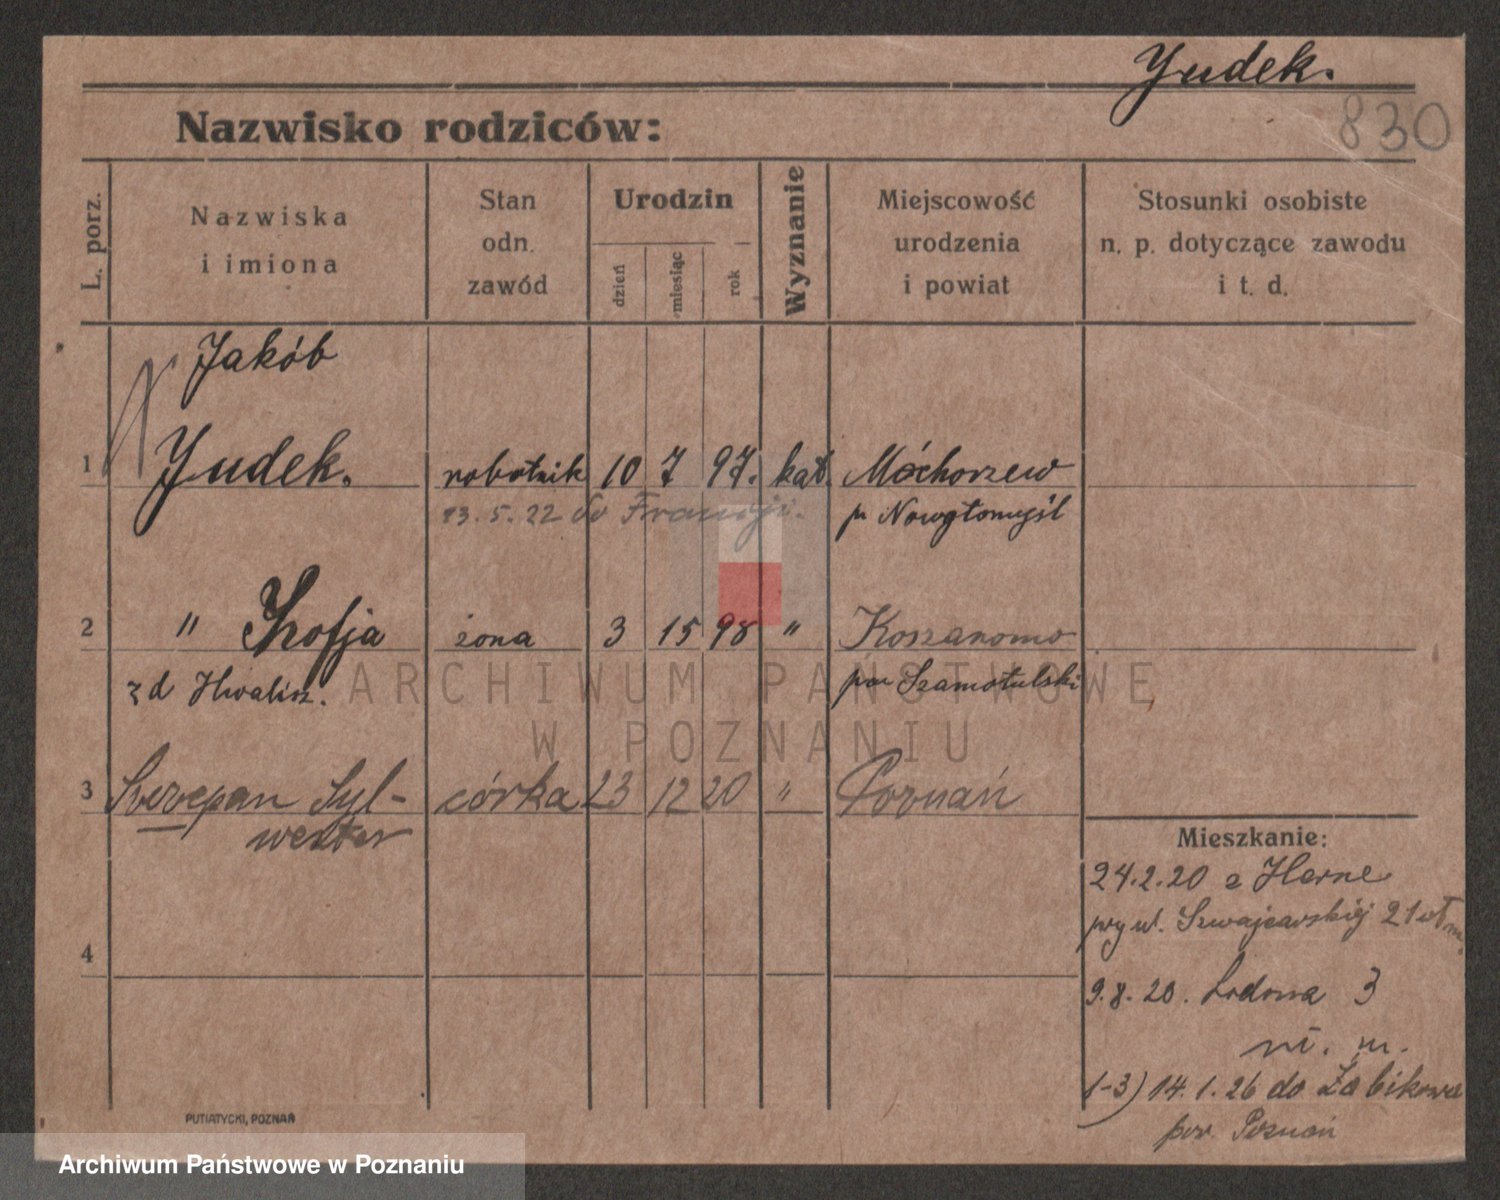 Yudek.
830
Nazwisko rodziców:
L. porz.
Nazwiska
i imiona
Stan
odn.
zawód
Urodzin
dzień
miesiąc
rok
Wyznanie
Miejscowość
urodzenia
i powiat
Stosunki osobiste
n. p. dotyczące zawodu
i t. d.
Jakób
1 Yudek. robotnik 10 7 97. kat. Móchorzew
13.5.22 do Francji. p Nowytomyśl
2 " Zofja żona 3 15 98 " Koszanowo
z d Hwalisz. pow Szamotulski
3 Szczepan Syl- córka 23 12 20 " Poznań
wester
Mieszkanie:
24.2.20 z Herne
przy ul. Szwajcarskiej 21
4
9.8.20. Lodowa 3
m.
1-3) 14.1.26 do Żabikowa
pow. Poznań
PUTIATYCKI, POZNAŃ
ARCHIWUM PAŃSTWOWE
W POZNANIU
Archiwum Państwowe w Poznaniu